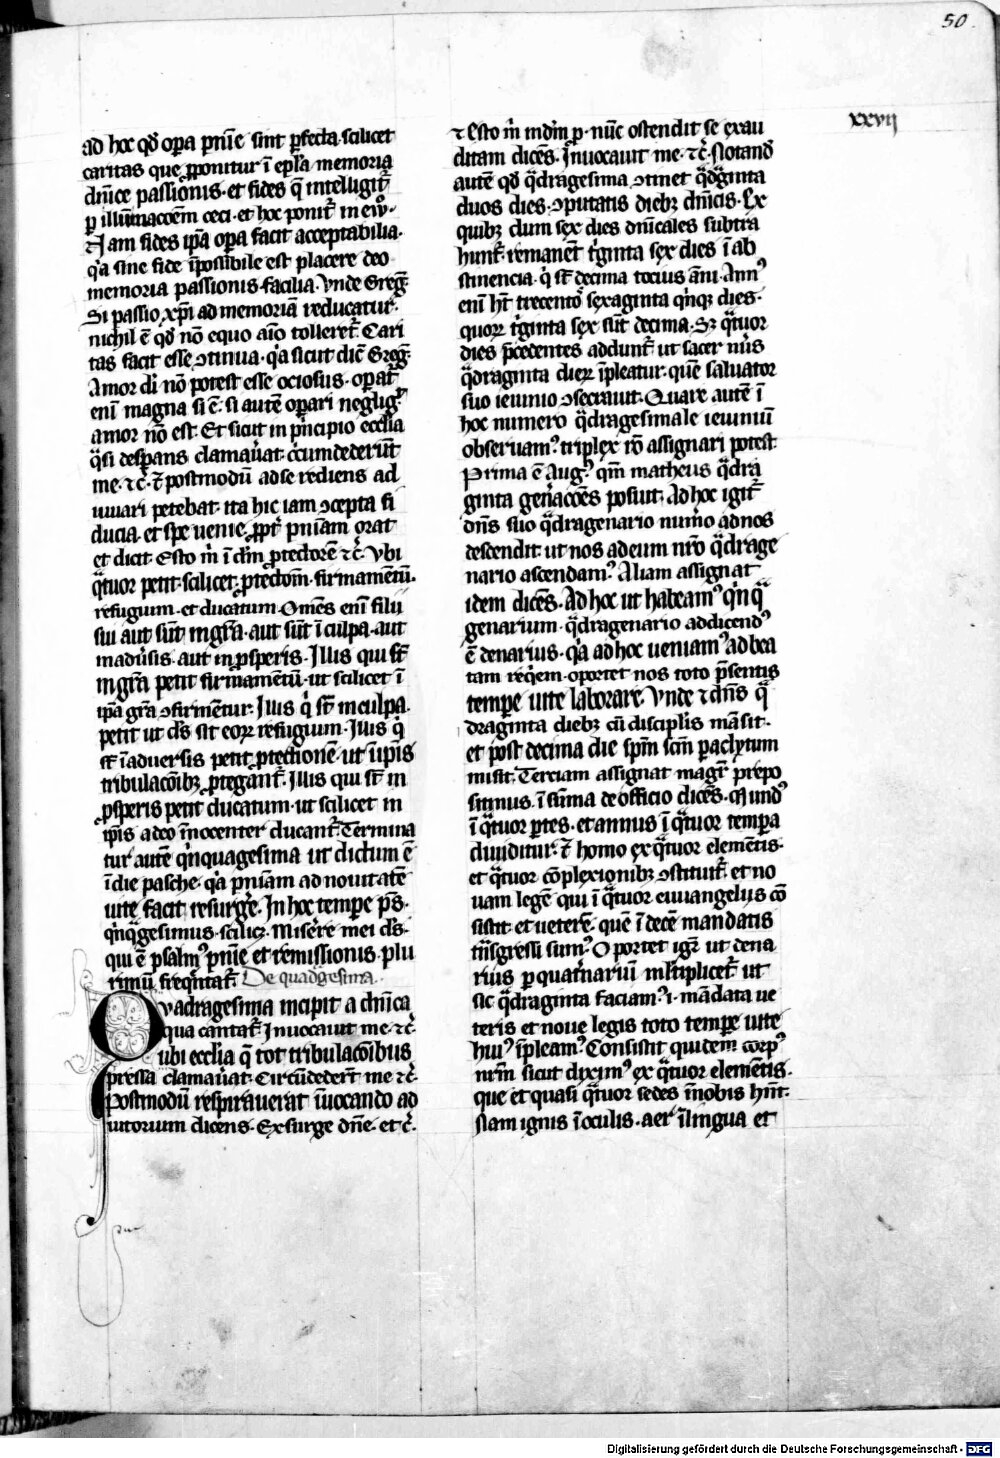 50
xxvij
ad hoc qd̃ oꝑa pñie sint ꝑfecta. scilicet
caritas que ꝓponitur ĩ epl̃a memoria
dñice passionis. et fides q̃ intelligit᷑
ꝑ illuminacoẽm ceci. et hoc ponit᷑ in ew̃.
Nam fides ip̃a oꝑa facit acceptabilia.
q̾a sine fide ĩpossibile est placere deo
memoria passionis facilia. Vnde Greg̃.
Si passio xp̃i ad memoriã reducatur.
nichil ẽ qd̃ nõ equo aĩo tolleret᷑. Cari
tas facit esse ꝯtinua. q̾a sicut dic̃ Greg̃.
Amor di nõ potest esse ociosus. oꝑat᷑
enĩ magna si ẽ. si autẽ oꝑari neglig᷑
amor nõ est. Et sicut in p̾ncipio eccl̃ia
q̃si desꝑans clamau̾at. c̾cumdederũt
me. ⁊c̃. ⁊ postmodũ ad se rediens ad
iuuari petebat. ita hic iam ꝯcepta fi
ducia. et spe uenie. ꝓpt̾ pñiam orat
et dicit. Esto m̾ ĩ dm̃ ꝓtectorẽ ⁊c̃. Vbi
q̃tuor petit. scilicet. ꝓtectiom̃. firmamẽtũ.
refugium. et ducatum. Om̃es enĩ filij
sui aut sũt in gr̃a. aut sũt ĩ culpa. aut
in adu̾sis. aut in ꝓsperis. Illis qui sũt
in gr̃a petit firmamẽtũ. ut scilicet ĩ
ip̃a gr̃a ꝯfirmẽtur. Illis q̾ sũt in culpa.
petit ut ds̃ sit eoꝝ refugium. Illis q̾
sũt ĩ aduersis petit ꝓtectionẽ. ut ĩ ip̃is
tribulacõibꝫ ꝓtegant᷑. Illis qui sũt in
ꝓsperis petit ducatum. ut scilicet in
ip̃is adeo ĩnocenter ducant᷑. Termina
tur autẽ q̾nquagesima ut dictum ẽ
ĩ die pasche. q̾a ꝑ pñiam ad nouitatẽ
uite facit resurg̾e. In hoc temꝑe ps̃.
q̾nq̃gesimus. scilicꝫ. Misẽre mei ds̃.
qui ẽ psalm᷒ pñie et remissionis. plu
rimũ freq̾ntat᷑. De quadᵃgesima.
Quadragesima incipit a dñica
qua cantat᷑. Inuocauit me. ⁊c̃.
ubi eccl̃ia q̃ tot tribulacõibus
pressa clamau̾at. Circũdedert̃ me ⁊c̃.
Postmodũ respirauerat ĩuocando ad
iutorium dicens. Exsurge dñe. et c̃.
⁊ Esto m̾ in dm̃ ꝓ. nũc ostendit se exau
ditam dicẽs. Inuocauit me. ⁊c̃. Notand̃
autẽ qd̃ q̃dragesima ꝯtinet q̃dᵃginta
duos dies. ꝯputatis diebꝫ dñicis. Ex
quibꝫ dum sex dies dñicales subtra
hunt᷑. remanẽt t̾ginta sex dies ĩ ab
stinencia. q̾ sũt decima tocius ãni. Ann᷒
enĩ hʼt trecento᷒ sexaginta q̾nqꝫ dies.
quoꝝ t̾ginta sex sũt decima. Sꝫ q̃tuor
dies p̃cedentes addunt᷑. ut sacer nu̾s
q̃draginta dieꝝ ĩpleatur. quẽ saluator
suo ieiunio ꝯsecrauit. Quare autẽ ĩ
hoc numero q̃dragesimale ieiuniũ
obseruam᷒. triplex rõ assignari potest
Prima ẽ Aug᷒. qm̃ matheus q̃dra
ginta gen̾acões posuit. Ad hoc igit᷑
dñs suo q̃dragenario num̾o ad nos
descendit. ut nos ad eum nr̃o q̃drage
nario ascendam᷒. Aliam assignat
idem dicẽs. Ad hoc ut habeam᷒ q̾nq̃
genarium. q̃dragenario addicend᷒
ẽ denarius. q̾a ad hoc ueniam᷒ ad bea
tam req̾em. oportet nos toto p̃sentis
temꝑe uite laborare. Vnde ⁊ dñs q̃
draginta diebꝫ cũ discipl̾is mãsit.
et post decima die spm̃ scm̃ paclytum
misit. Terciam assignat magr̃ prepo
sitinus. ĩ sũma de officio dicẽs. Mund᷒
ĩ q̃tuor ꝑtes. et annus ĩ q̃tuor temꝑa
diuiditur. ⁊ homo ex q̃tuor elemẽtis.
et q̃tuor cõplexionibꝫ ꝯstituit᷑. et no
uam legẽ qui ĩ q̃tuor euuangeliis cõ
sistit. et ueterẽ. quẽ ĩ decẽ mandatis
tñsgressi sum᷒. Oportet igr̃ ut dena
rius ꝑ quat̾nariũ ml̃tiplicet᷑ ut
sic q̃draginta faciam᷒. i. mãdata ue
teris et noue legis toto temꝑe uite
hui᷒ ĩpleam᷒. Consistit quidem corp᷒
nr̃m sicut dixim᷒ ex q̃tuor elemẽtis.
que et quasi q̃tuor sedes ĩ nobis hñt.
Nam ignis ĩ oculis. aer ĩ lingua et
Digitalisierung gefördert durch die Deutsche Forschungsgemeinschaft - DFG